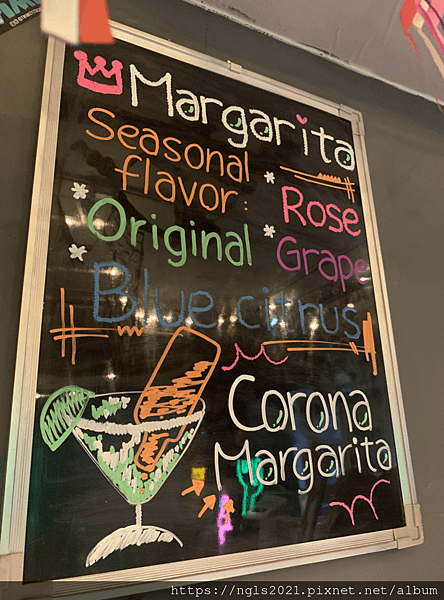 Margarita
Seasonal
flavor:
* Rose
* Original
* Grape
* Blue citrus
Corona
Margarita
https://ngls2021.pixnet.net/album